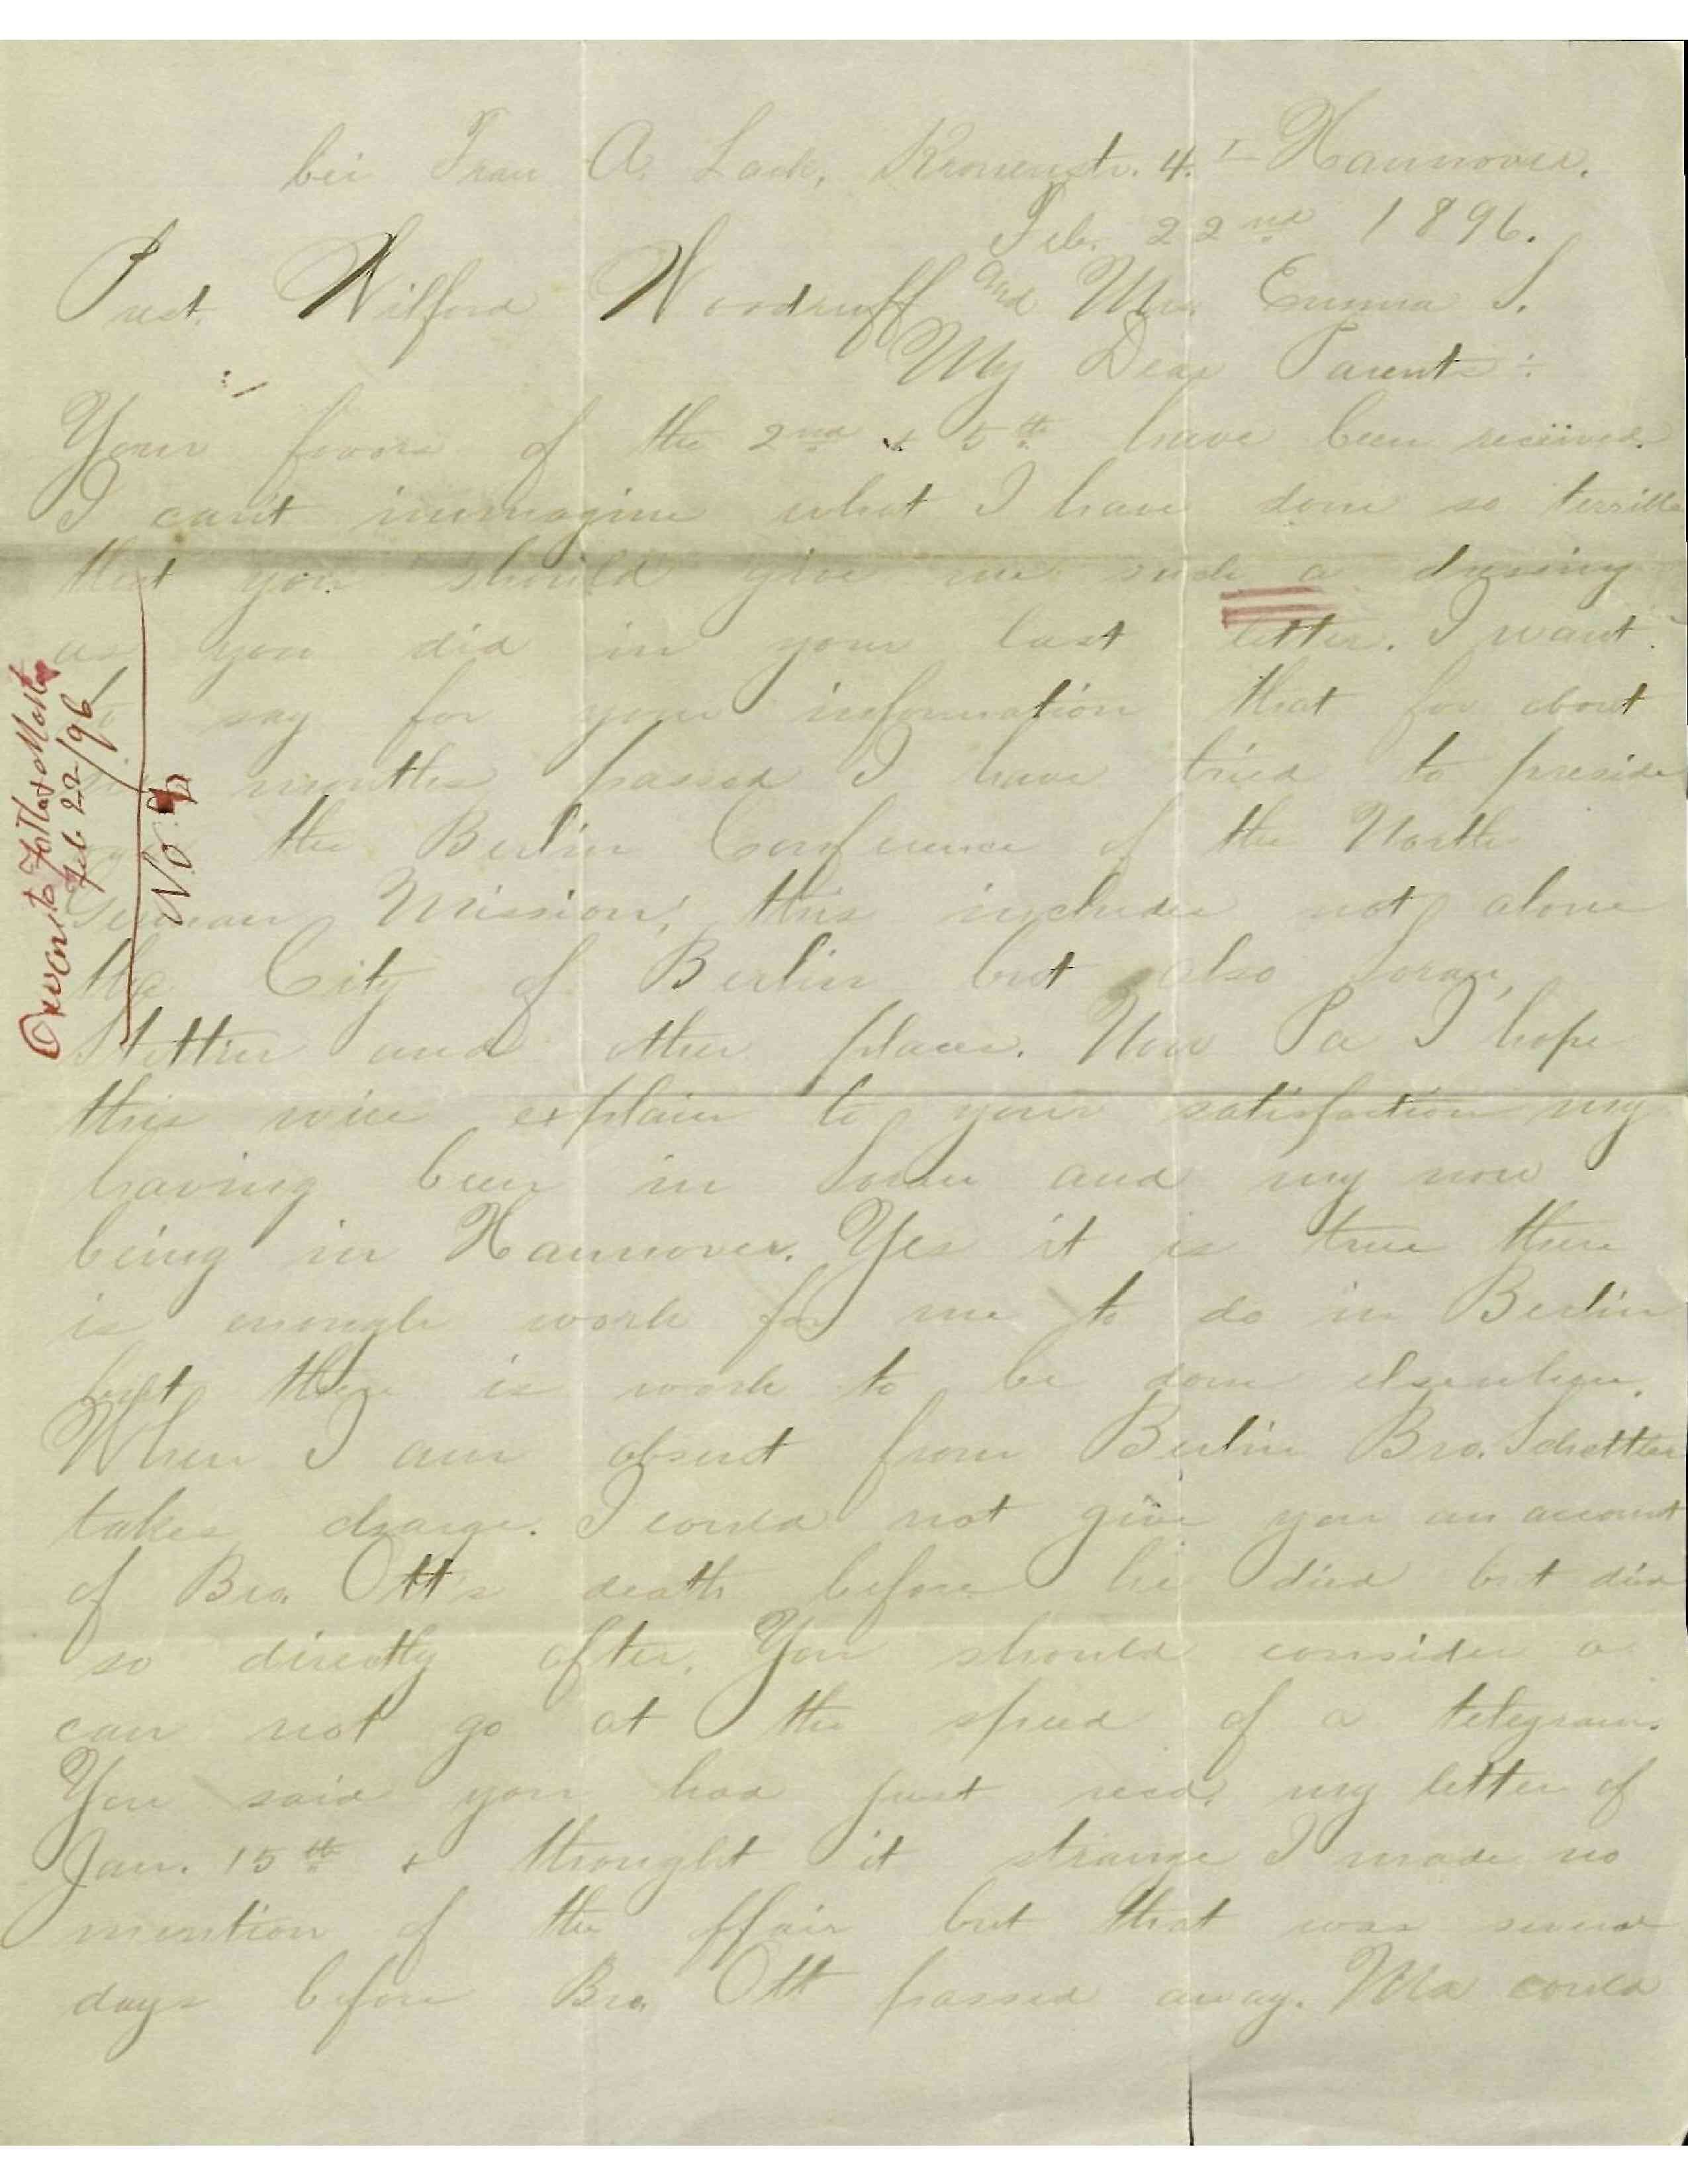 bei Frau A. Lack, Kronenstr. 4. I Hannover.
Feb. 22nd 1896.
Prest. Wilford Woodruff and Mrs. Emma S.
My Dear Parents:
Your favors of the 2nd & 5th have been received.
I can't immagine what I have done so terrible
that you should give me such a dressing
as you did in your last letter. I want
to say for your information that for about
six months passed I have tried to preside
over the Berlin Conference of the North
German Mission; this includes not alone
the City of Berlin but also Sorau,
Stettin and other places. Now Pa I hope
this will explain to your satisfaction my
having been in Sorau and my now
being in Hannover. Yes it is true there
is enough work for me to do in Berlin
but there is work to be done elsewhere.
When I am absent from Berlin Bro. Schettler
takes charge. I could not give you an account
of Bro. Ott's death before he died but did
so directly after. You should consider a
can not go at the speed of a telegram.
You said you had just recd. my letter of
Jan. 15th & thought it strange I made no
mention of the ffair but that was several
days before Bro. Ott passed away. Ma could
Owen to Father & Mother
Feb 22/96
No.